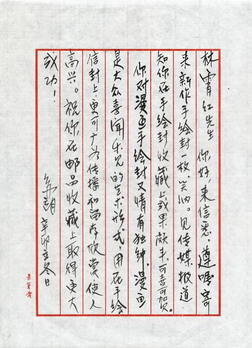 林霄红先生 你好,来信悉,遵嘱寄
来新作手绘封一枚,笑纳。见传媒报道
知你在手绘封收藏上成果颇丰可喜可贺。
你对漫画手绘封又情有独钟。漫画
是大众喜闻乐见的艺术形式,用在手绘
信封上更可广为传播和留存欣赏使人
高兴。祝你在邮品收藏上取得更大
成功!
辛卯立冬日